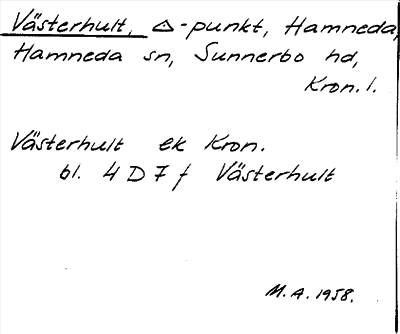 Västerhult, △-punkt, Hamneda,
Hamneda sn, Sunnerbo hd,
Kron. l.
Västerhult ek Kron.
bl. 4 D 7 f Västerhult
M.A. 1958.